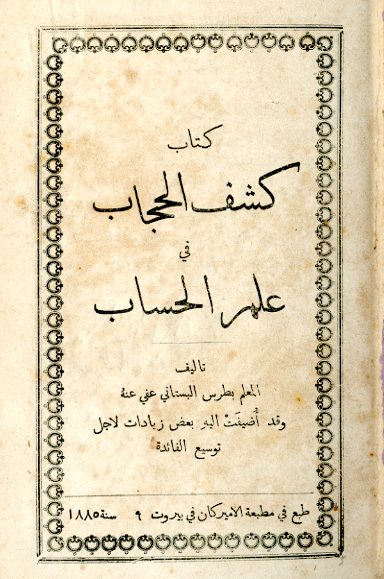 كتاب
كشف الحجاب
في
علم الحساب
تاليف
المعلم بطرس البستاني عفي عنهُ
وقد أُضيفَتْ اليهِ بعض زيادات لاجل
توسيع الفائدة
طبع في مطبعة الاميركان في بيروت ٩ سنة ١٨٨٥